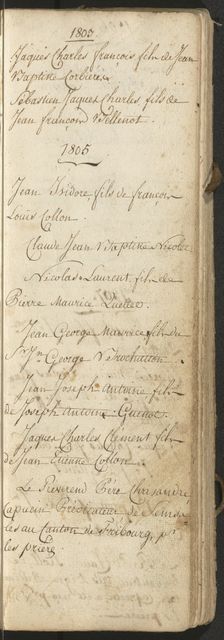 1803
Jaques Charles françois fils de Jean
Baptiste Corbière
Sébastien Jaques Charles fils de
Jean françois Pellenot.
1805
Jean Isidore fils de françois
Louis Collon.
Claude Jean Baptiste Nicolet
Nicolas Laurent, fils de
Pierre Maurice
Jean George Maurice fils du
Sr Jn George
Jean Joseph Antoine fils
de Joseph Antoine Guenot.
Jaques Charles Clément fils
de Jean Etienne Collon.
Le Reverend Père
Capucin Prédicateur de
les au Canton de Fribourg, pr
les prières